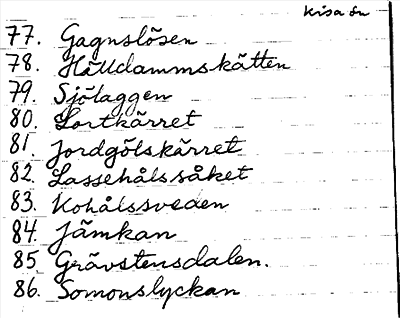 Kisa sn
77. Gagnslösen
78. Hälldammskätten
79. Sjölaggen
80. Lortkärret
81. Jordgölskärret
82. Lassehålssåket
83. Kohålssveden
84. Jämkan
85 Grävstensdalen.
86. Somonslyckan